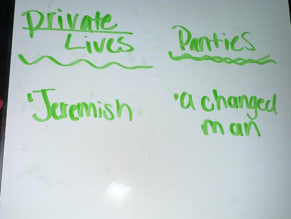 Private
Lives
• Jeremish
Panties
• a changed
man